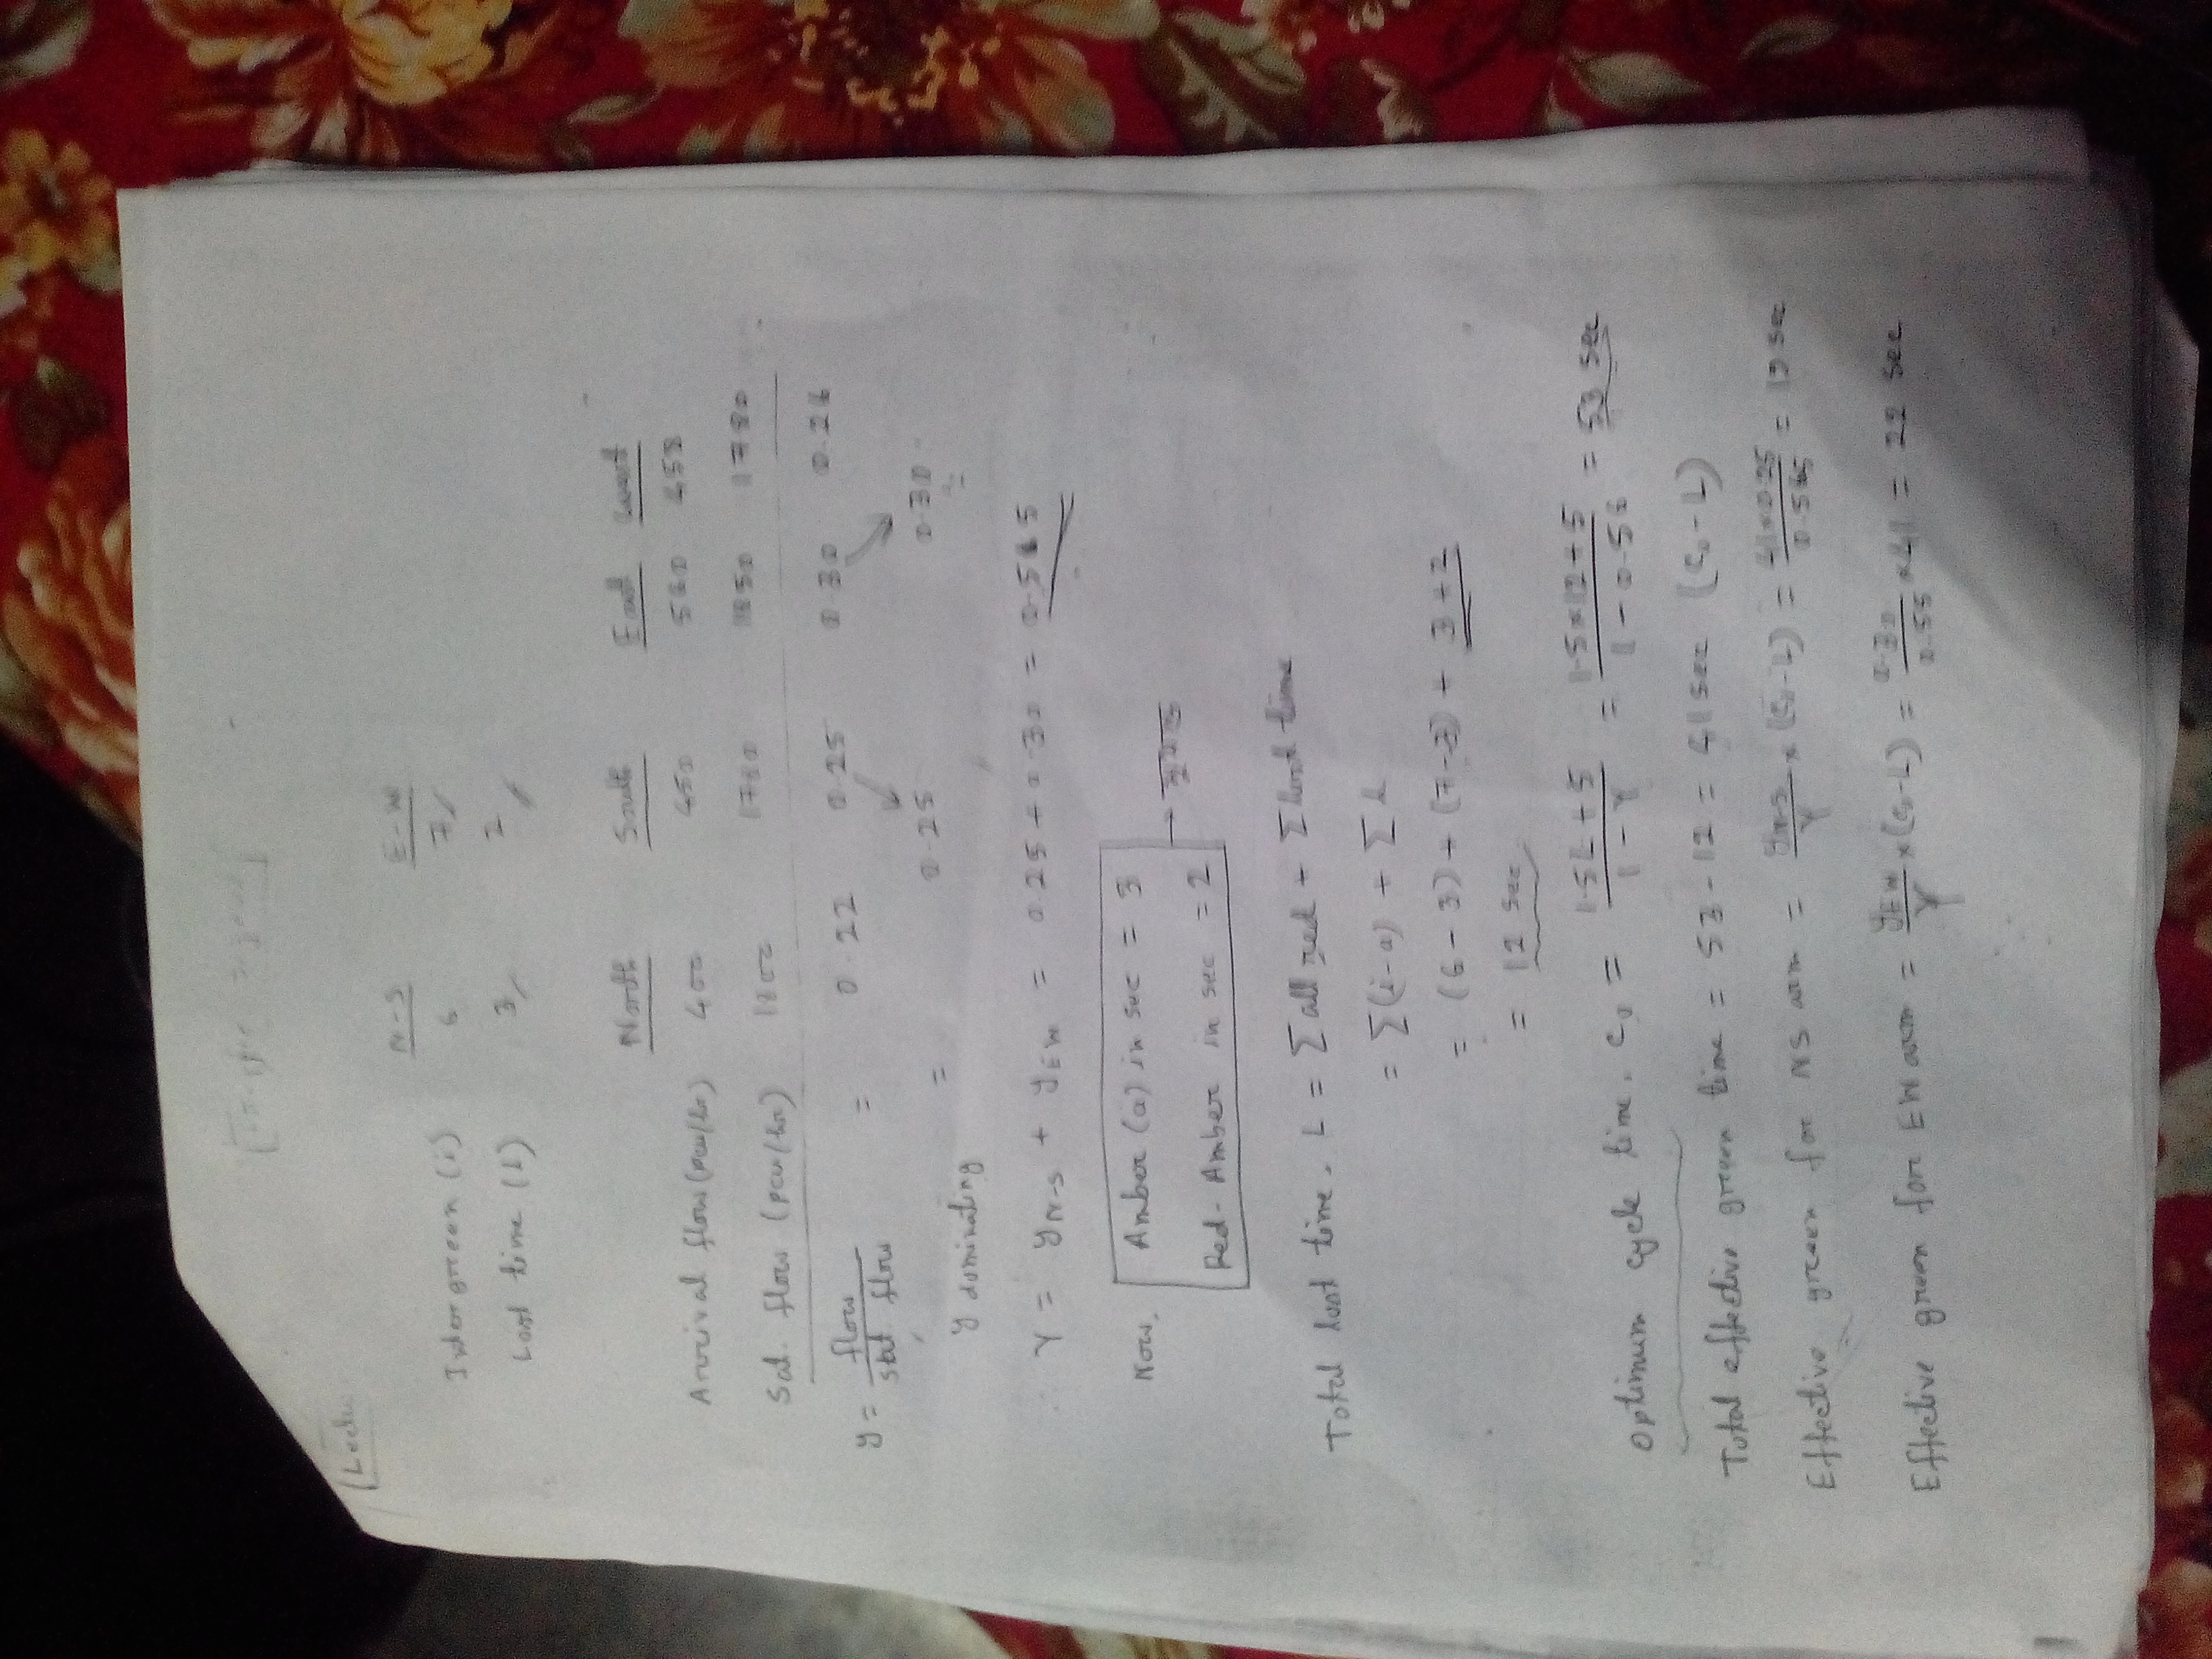 N-S E-W
Intergreen (i) 6 7
Lost time (l) 3 2
North South East West
Arrival flow (pcu/hr) 400 450 560 458
Sat. flow (pcu/hr) 1800 1780 1850 1780
y = flow / sat. flow = 0.22 0.25 0.30 0.26
y dominating = 0.25 0.30
Y = yN-S + yEW = 0.25 + 0.30 = 0.565
Now,
Amber (a) in sec = 3
Red-Amber in sec = 2
Total lost time, L = Σ all red + Σ lost time
= Σ(i-a) + Σ l
= (6-3) + (7-3) + 3+2
= 12 sec
Optimum cycle time, c₀ = 1.5L+5 / 1-Y = 1.5×12+5 / 1-0.56 = 53 sec
Total effective green time = 53-12 = 41 sec (c₀-L)
Effective green for NS arm = yN-S / Y × (c₀-L) = 41×0.25 / 0.565 = 19 sec
Effective green for EW arm = yEW / Y × (c₀-L) = 0.30 / 0.55 × 41 = 22 sec